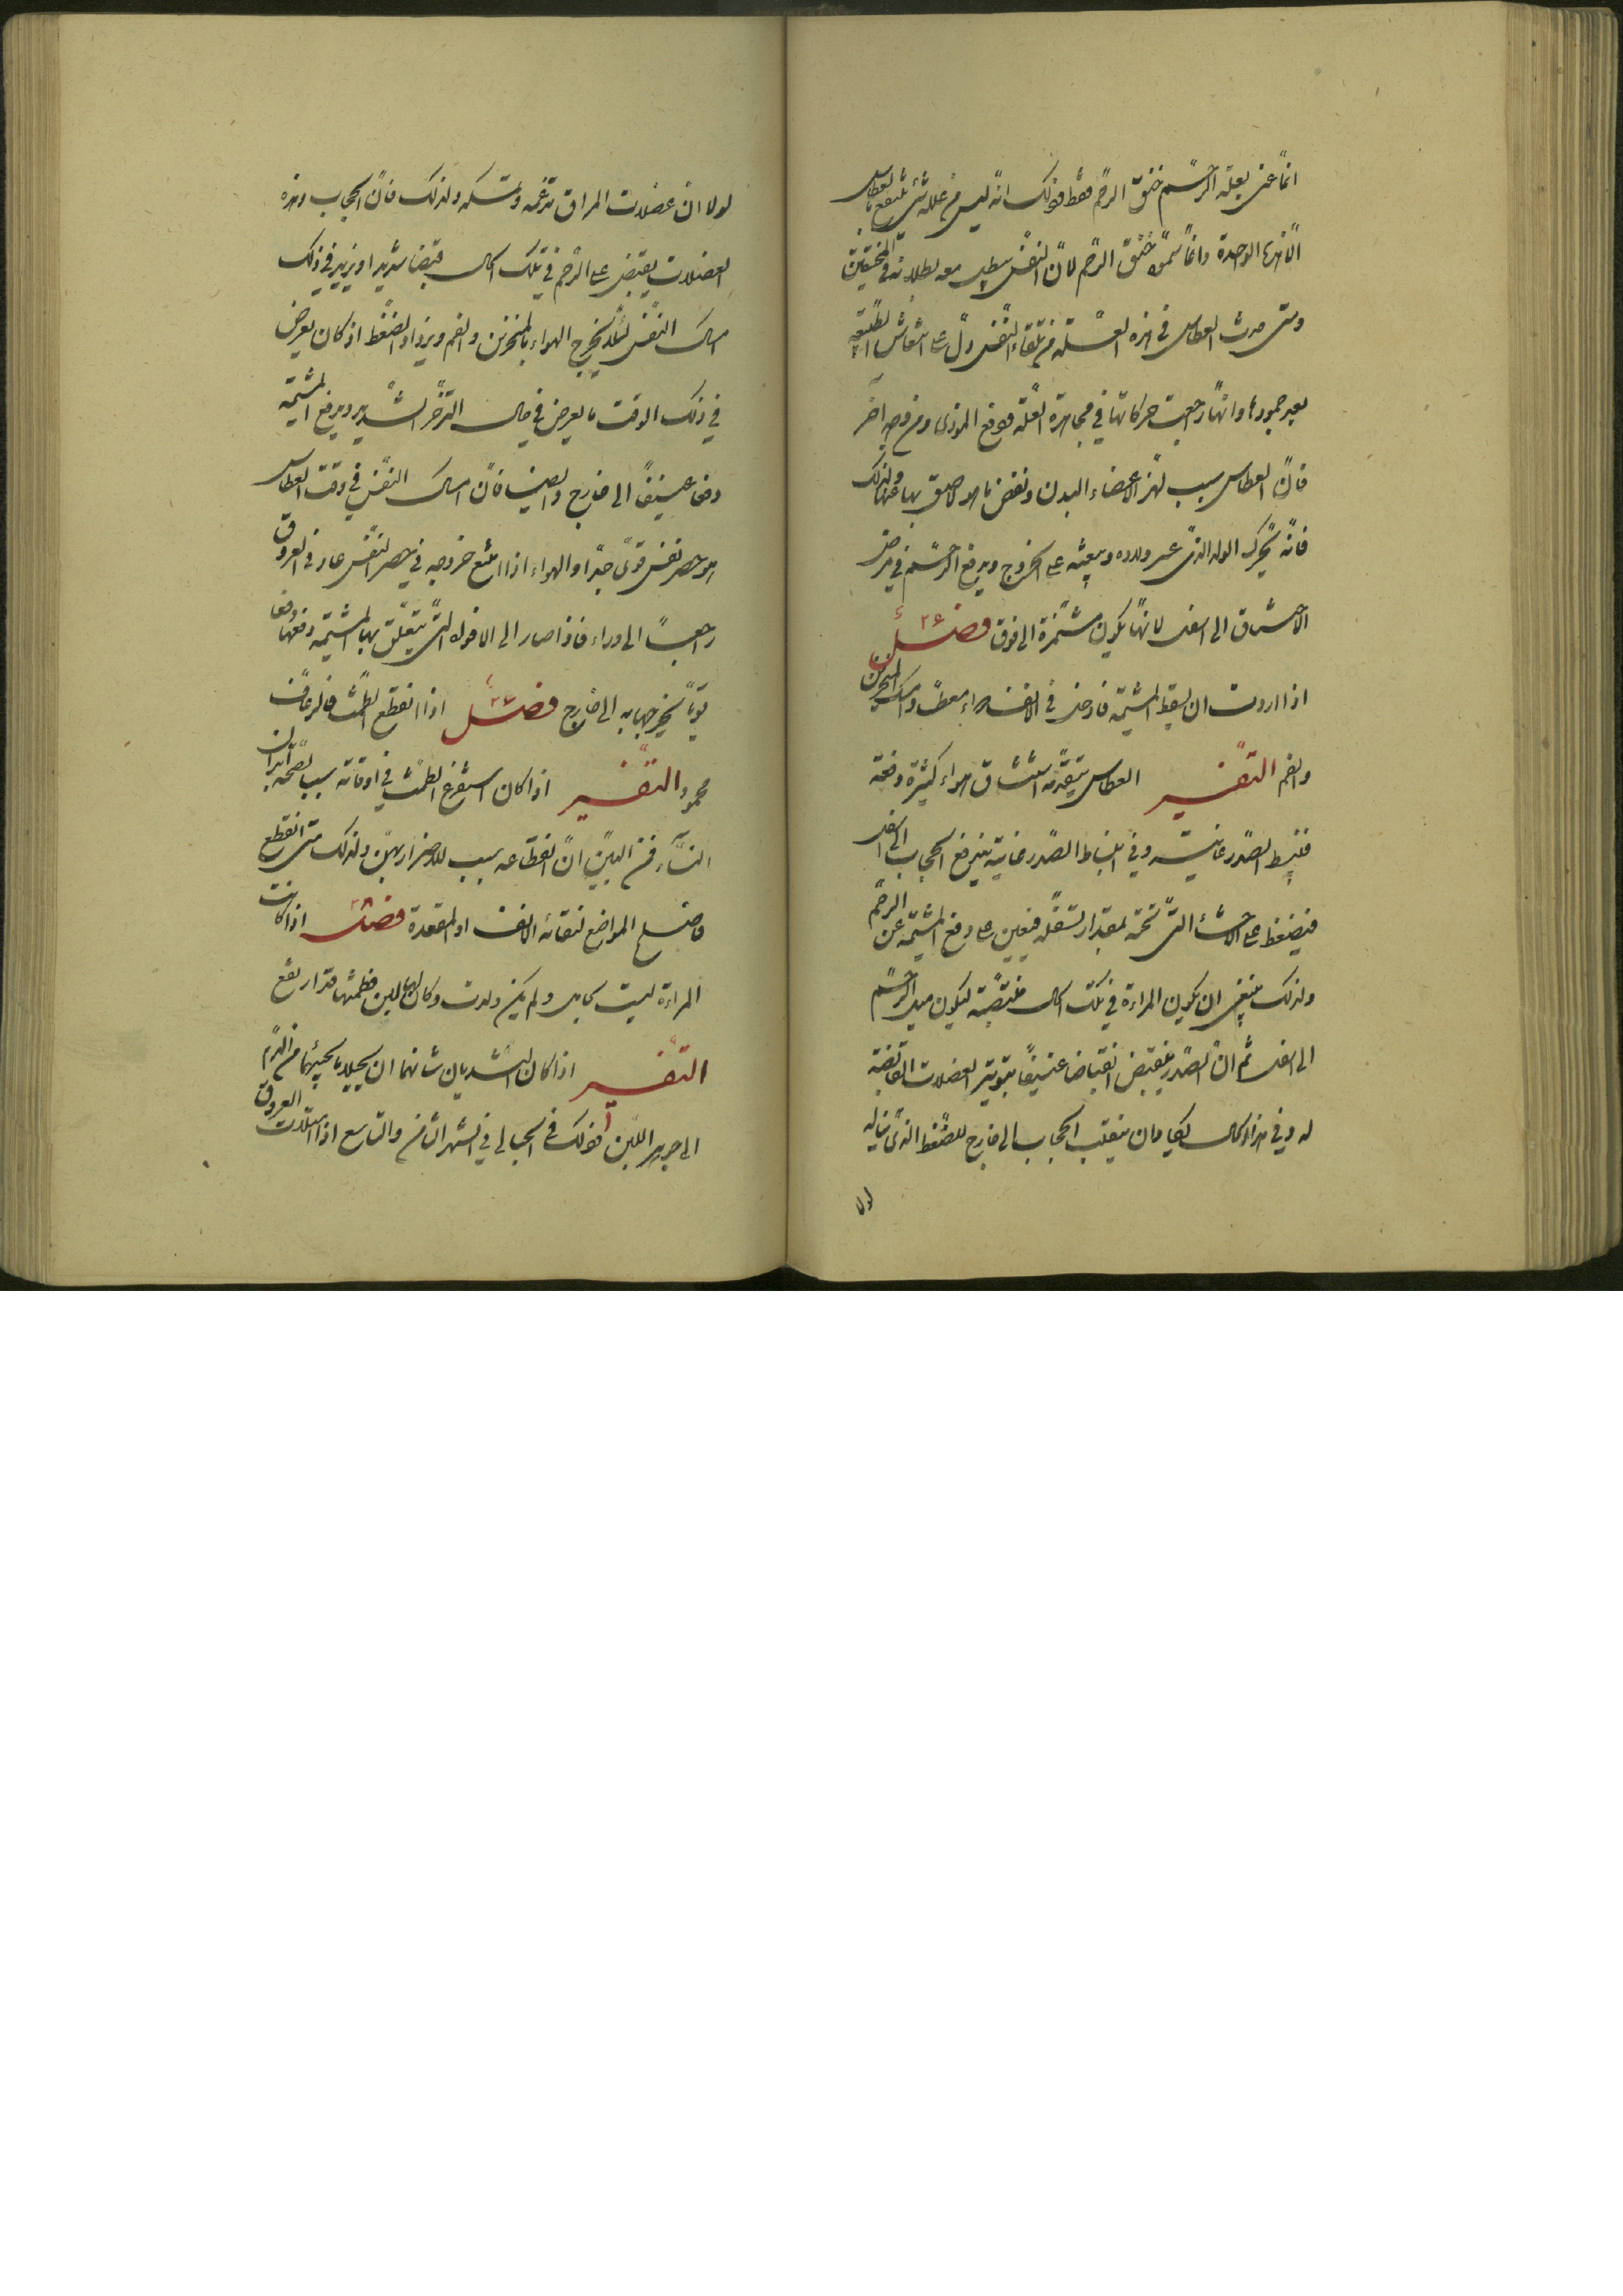 انما عنى بعلة الرحم خنق الرحم فقط وذلك انه ليس من علله شئ ينتفع بالعطاس
الا هذا الوحدة وانما سموه خنق الرحم لان النفس يبطل معه لبطلانه في المختنقين
ومتى حدث العطاس في هذه العلة من تلقاء النفس دل على انتعاش الطبيعة
بعد جمودها وانها رجعت حركاتها في مجاهدة العلة ودفع الموذى ومن وجه آخر
فان العطاس سبب لهز الاعضاء البدن ونفض ما هو لاصق بها عنها ولذلك
فانه يحرك الولد الذى عسر ولاده ويبعثه على الخروج ويدفع الرحم في مرض
الاختناق الى اسفل لانها يكون مشمرة الى فوق فصل ٣٤
اذا اردت ان يسقط المشيمة فادخل في الانف دواء معطسا وامسك المنخرين
والفم التفسير العطاس يتقدمه استنشاق هواء كثيرة دفعة
فينبسط الصدر غايته وفي انبساط الصدر غايته يندفع الحجاب الى اسفل
فيضغط على الاحشاء التى تحته بمقدار تسفله فيعين على دفع المشيمة عن الرحم
ولذلك ينبغى ان يكون المراءة في تلك الحال منتصبة ليكون ميل الرحم
الى اسفل ثم ان الصدر ينقبض انقباضا عنيفا بتوتير العضلات القابضة
له وفي هذا الحال يكاد ان ينقلب الحجاب الى خارج للضغط الذى يناله
لولا
لولا ان عضلات المراق تدعمه وتمسكه ولذلك فان الحجاب وهذه
العضلات يقبض على الرحم في تلك الحال قبضا شديدا ويزيد في ذلك
امساك النفس لئلا يخرج الهواء بالمنخرين والفم ويزداد الضغط اذ كان يعرض
في ذلك الوقت ما يعرض في حال التزحر الشديد ويدفع المشيمة
دفعا عنيفا الى خارج وايضا فان امساك النفس في وقت العطاس
هو حصر نفس قوى جدا والهواء اذا امتنع خروجه في حصر النفس عاد في العروق
راجعا الى وراء فاذا صار الى الافواه التى يتعلق بها المشيمة دفعها دفعا
قويا يخرجها به الى خارج فصل ٣٥ اذا انقطع الطمث فالرعاف
محمود التفسير اذا كان استفراغ الطمث في اوقاته سببا لصحة ابدان
النساء فمن البين ان انقطاعه سبب للاضرار بهن ولذلك متى انقطع
فاصلح المواضع لنقائه الانف او المقعدة فصل اذا كانت
المراءة ليست بحامل ولم يكن ولدت وكان لها لبن فطمثها قد ارتفع
التفسير اذا كان الثديان شانهما ان يحيلا ما يجيئهما من الدم
الى جوهر اللبن وذلك في الحبالى في الشهر الثامن والتاسع اذا امتلات العروق